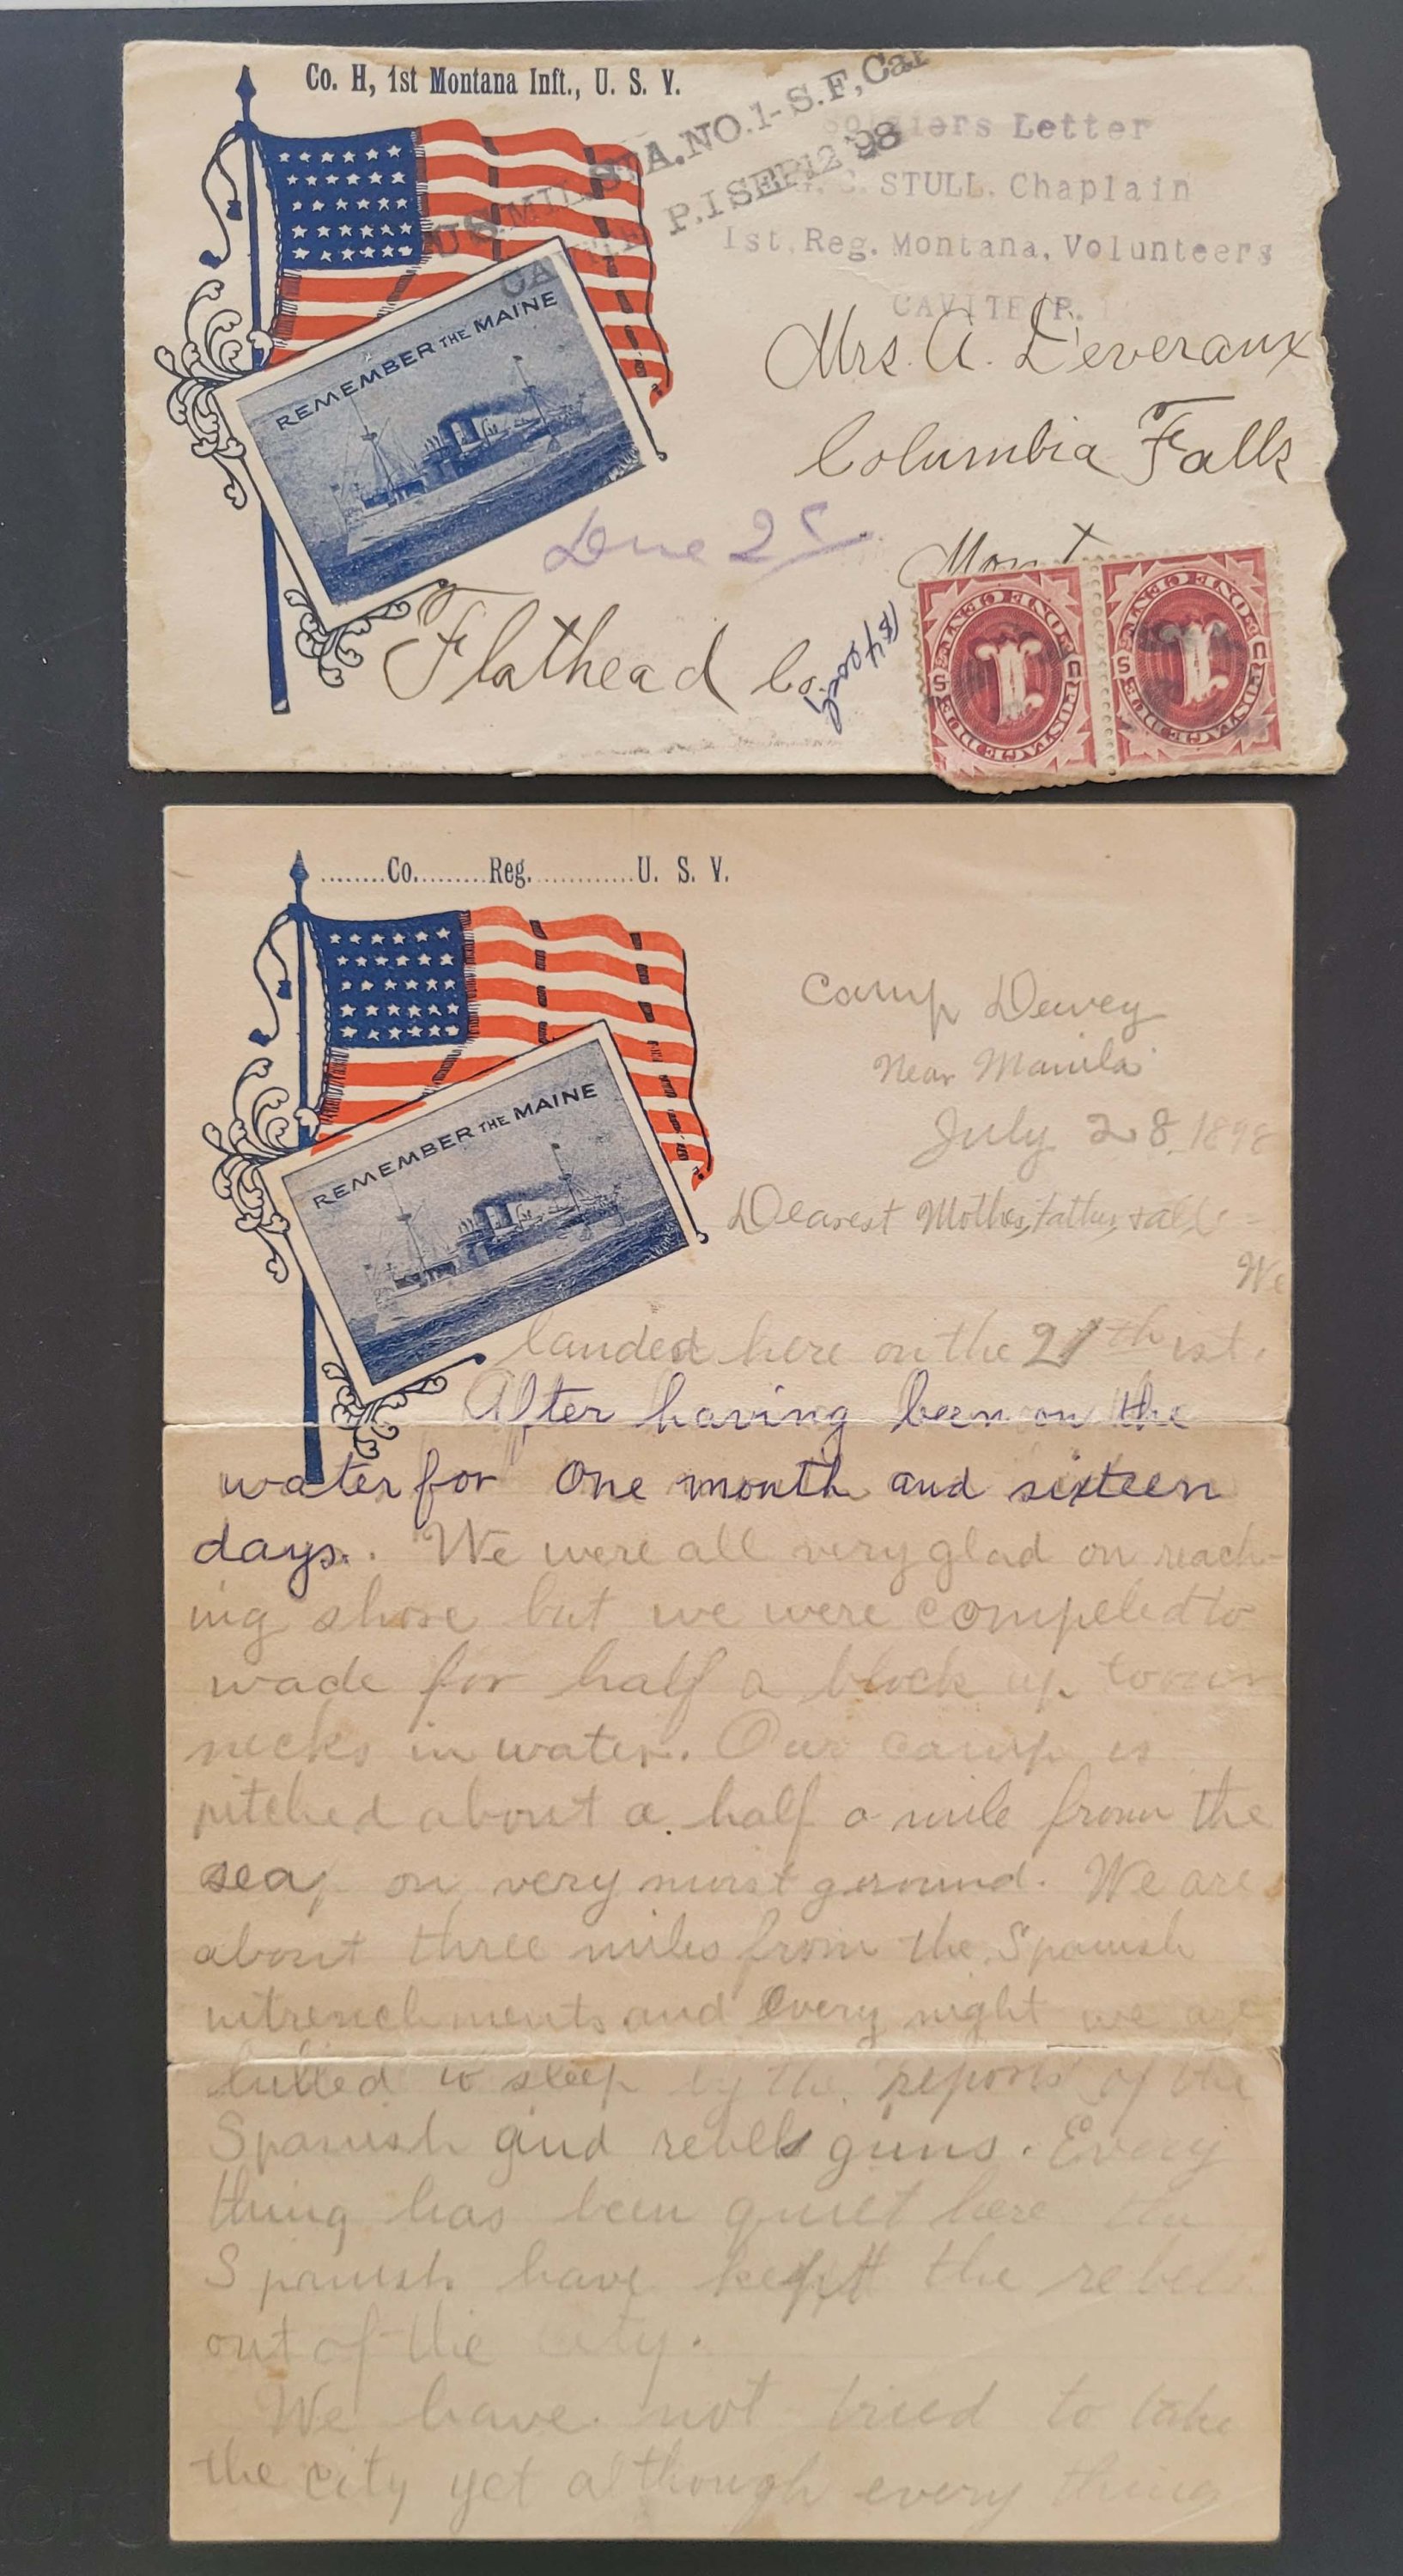 Co. H, 1st Montana Inft., U. S. V.
U.S. MIL. STA. NO. 1 - S.F, Cal
P.I SEP 12 '98
Soldiers Letter
C. STULL. Chaplain
1st, Reg. Montana, Volunteers
CAVITE P. I
REMEMBER THE MAINE
Mrs. A. Deveraux
Columbia Falls
Mont
Due 2c
Flathead Co.
ONE CENT
1
U S
POSTAGE DUE
ONE CENT
1
U S
POSTAGE DUE
........Co.........Reg.............U. S. V.
REMEMBER THE MAINE
Camp Dewey
Near Manila
July 28. 1898
Dearest Mother, father, & all:=
We
landed here on the 21th ist.
After having been on the
water for One month and sixteen
days. We were all very glad on reach-
ing shore but we were compeled to
wade for half a block up to our
necks in water. Our camp is
pitched about a half a mile from the
sea, on very moist ground. We are
about three miles from the Spanish
intrenchments and every night we are
lulled to sleep by the reports of the
Spanish and rebels guns. Every
thing has been quiet here the
Spanish have kept the rebels
out of the city.
We have not tried to take
the city yet although every thing